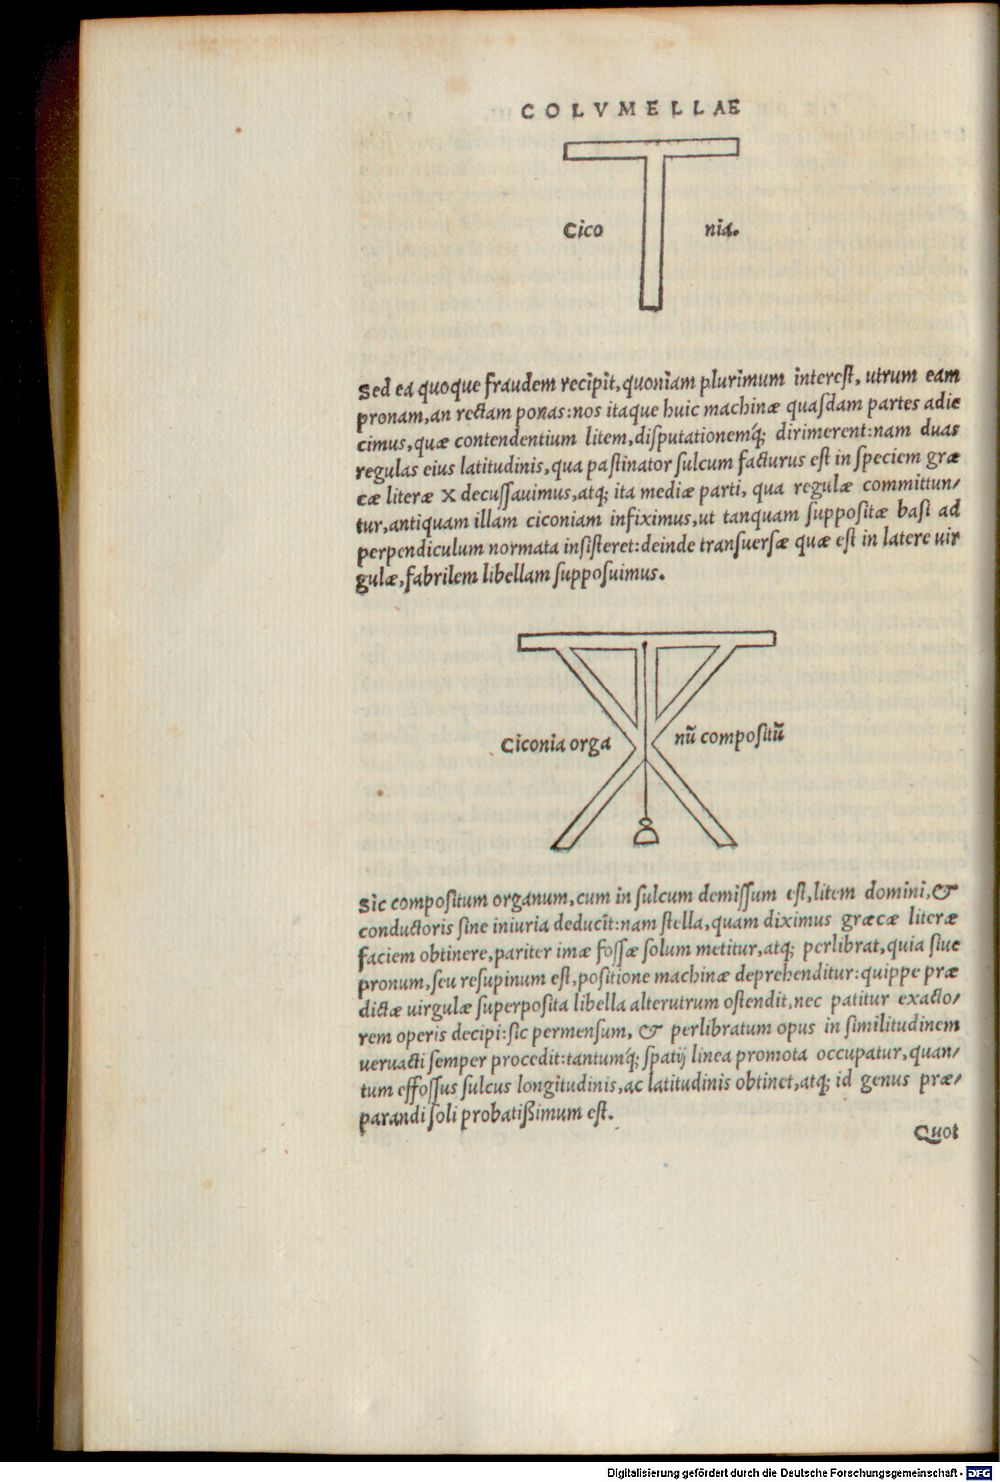 COLVMELLAE
Cico nia.
Sed ea quoque fraudem recipit, quoniam plurimum interest, utrum eam
pronam, an rectam ponas: nos itaque huic machinæ quasdam partes adie
cimus, quæ contendentium litem, disputationemq́; dirimerent: nam duas
regulas eius latitudinis, qua pastinator sulcum facturus est in speciem græ
cæ literæ X decussauimus, atq; ita mediæ parti, qua regulæ committun/
tur, antiquam illam ciconiam infiximus, ut tanquam suppositæ basi ad
perpendiculum normata insisteret: deinde transuersæ quæ est in latere uir
gulæ, fabrilem libellam supposuimus.
Ciconia orga nũ compositũ
Sic compositum organum, cum in sulcum demissum est, litem domini, &
conductoris sine iniuria deducit: nam stella, quam diximus græcæ literæ
faciem obtinere, pariter imæ fossæ solum metitur, atq; perlibrat, quia siue
pronum, seu resupinum est, positione machinæ deprehenditur: quippe præ
dictæ uirgulæ superposita libella alterutrum ostendit, nec patitur exacto/
rem operis decipi: sic permensum, & perlibratum opus in similitudinem
ueruacti semper procedit: tantumq́; spatij linea promota occupatur, quan/
tum effossus sulcus longitudinis, ac latitudinis obtinet, atq; id genus præ/
parandi soli probatißimum est.
Quot
Digitalisierung gefördert durch die Deutsche Forschungsgemeinschaft - DFG